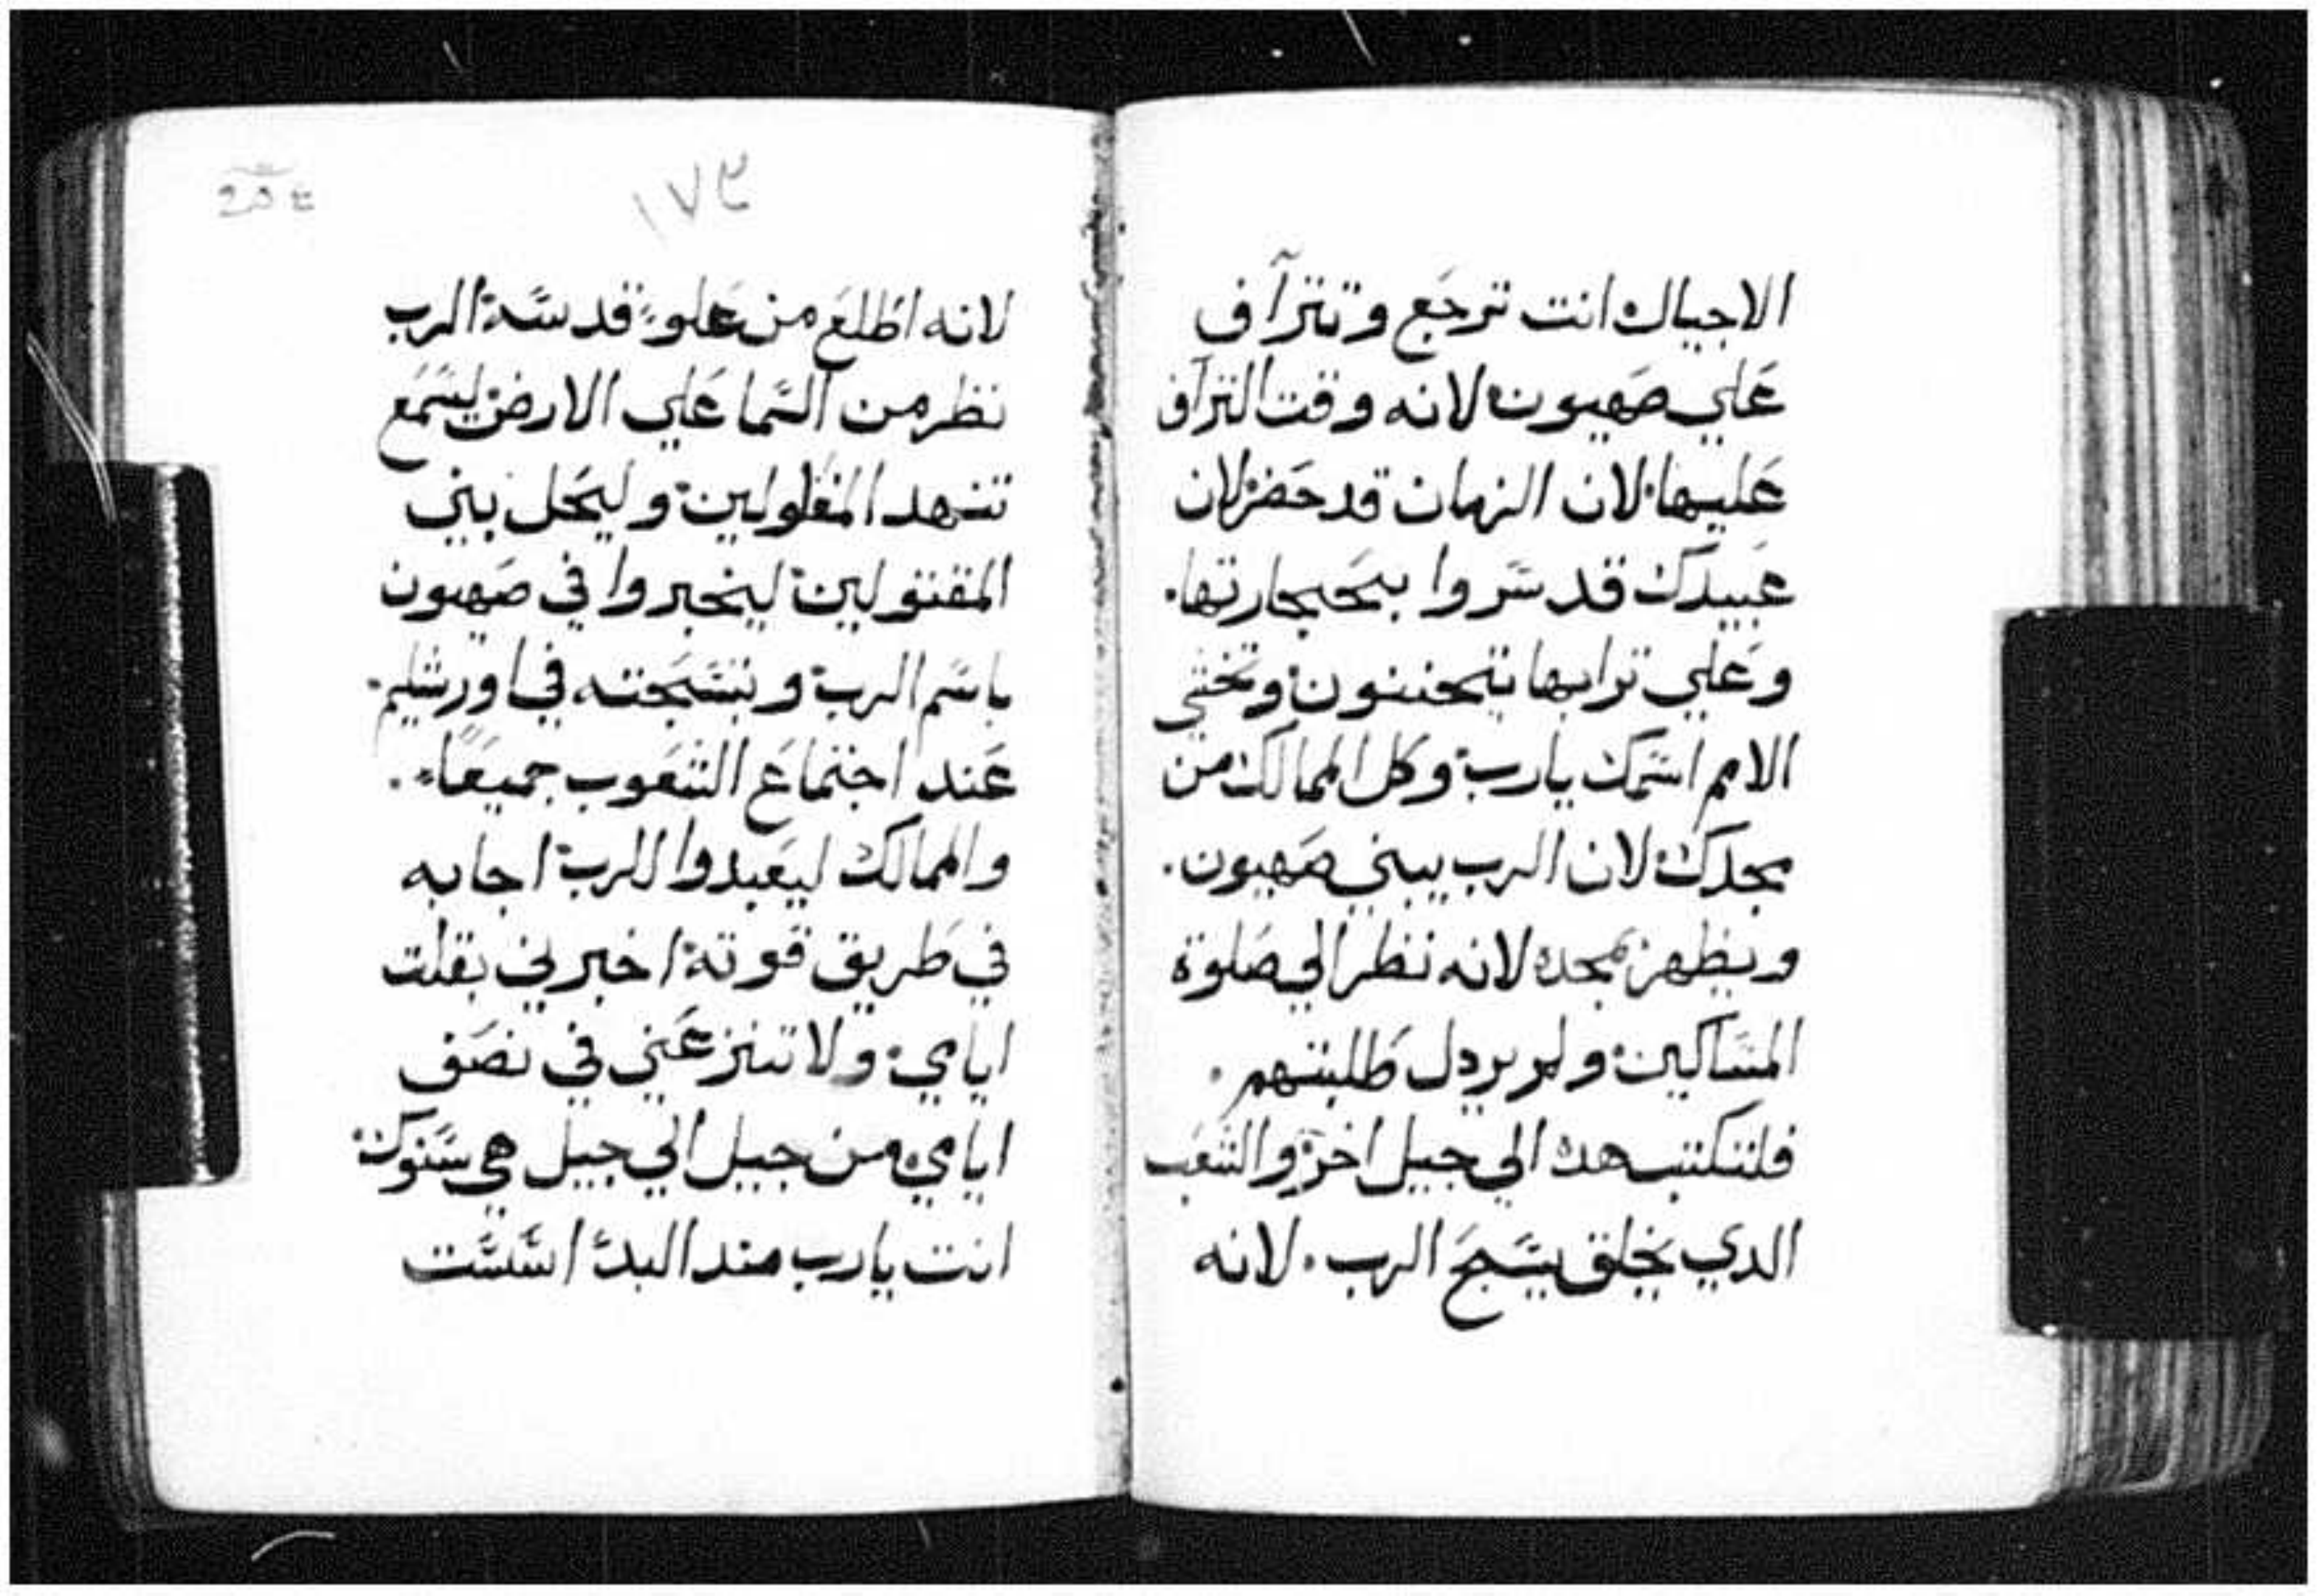 الاجيال انت ترجع وتترآف
علي صهيون لانه وقت التراف
عليها لان الزمان قد حضر لان
عبيدك قد سروا بحجارتها.
وعلي ترابها يتحننون وتخشي
الامم اسمك يارب وكل الممالك من
مجدك لان الرب يبني صهيون.
ويظهر بمجده لانه نظر الي صلوة
المساكين ولم يردل طلبتهم.
فلتكتب هده الي جيل اخر والشعب
الدي يخلق يسبح الرب. لانه
١٧٣
لانه اطلع من علو قدسه الرب
نظر من السما علي الارض ليسمع
تنهد المغلولين وليحل بني
المقتولين ليخبروا في صهيون
باسم الرب وبتسبحته في اورشليم.
عند اجتماع الشعوب جميعاً.
والممالك ليعبدوا للرب اجابه
في طريق قوته اخبرني بقلت
ايامي ولا تنزعني في نصف
ايامي من جيل الي جيل هي سنوك
انت يارب مند البدء اسست